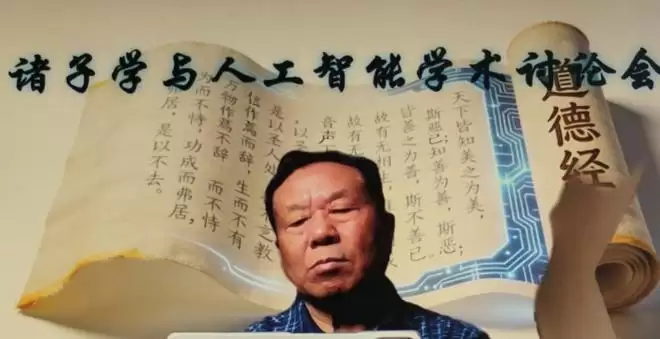 诸子学与人工智能学术讨论会
道德经
天下皆知美之为美，
斯恶已;知善为善，斯恶;
皆善之为善，斯不善已。
故有无相生，
故有无
音声
，以
是以圣人处 不之教
信作焉而辞，生而不有
万物作焉不辞 而不恃
为而不恃，功成而弗居，
弗居，是以不去。